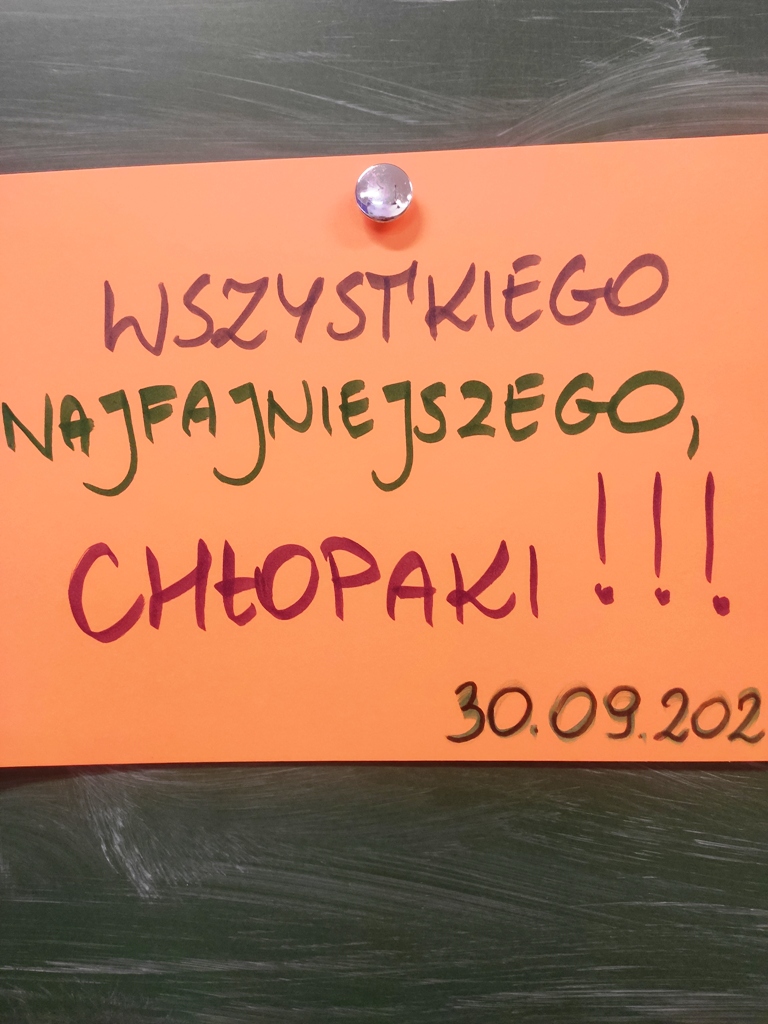 WSZYSTKIEGO
NAJFAJNIEJSZEGO,
CHŁOPAKI !!!
30.09.202